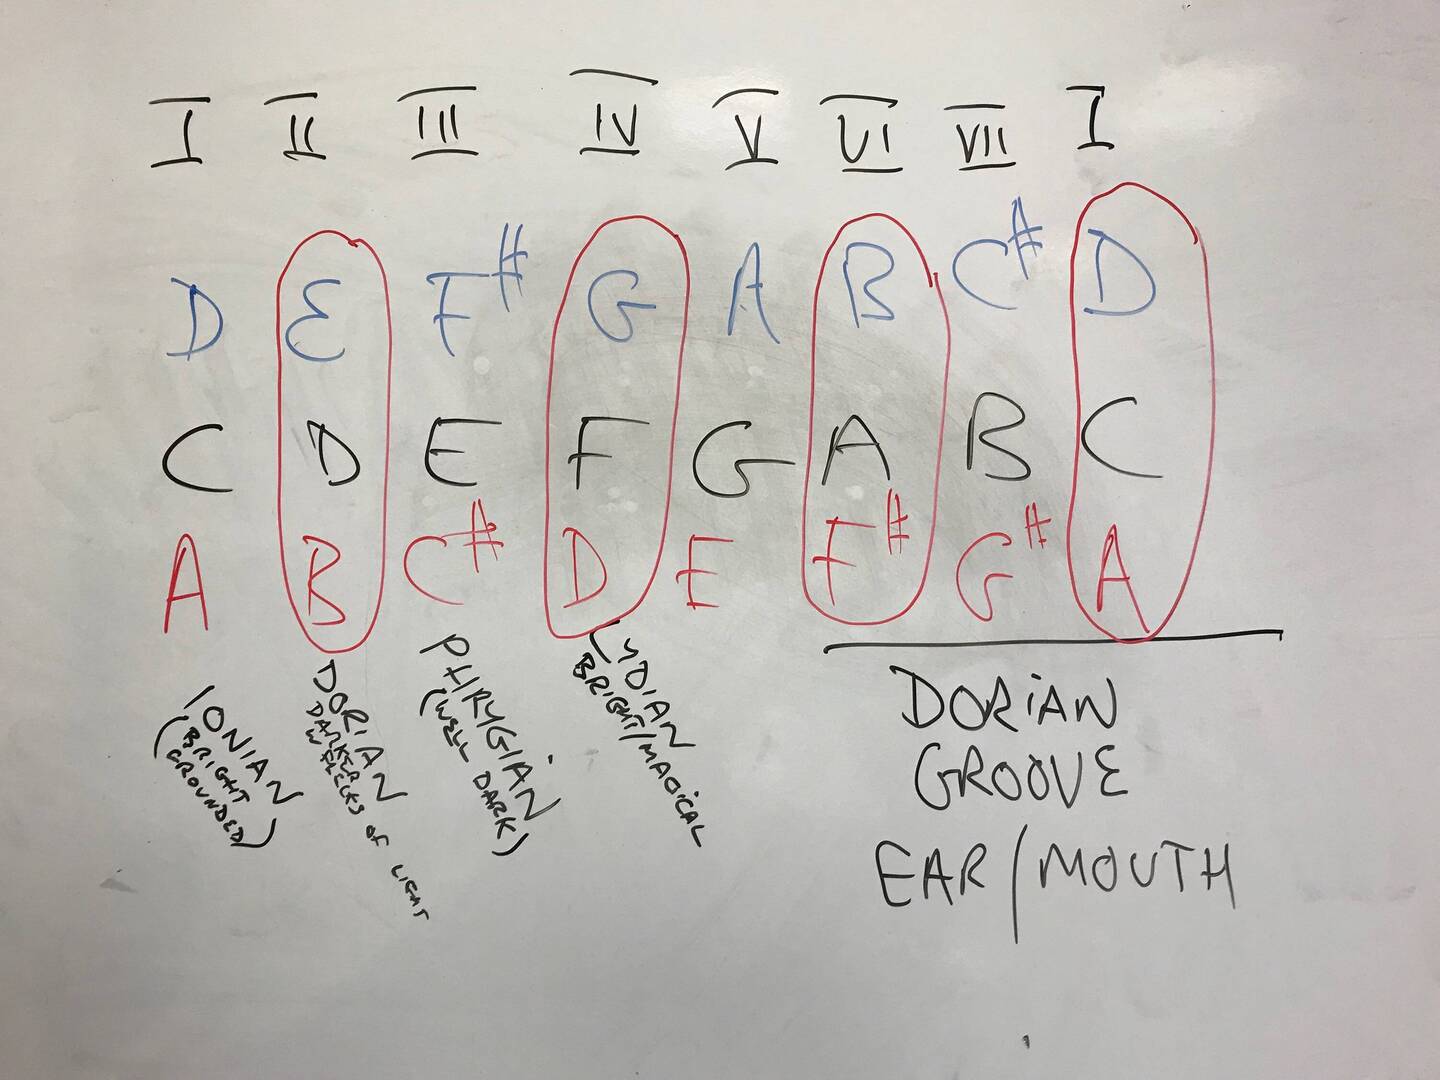 I II III IV V VI VII I
D E F# G A B C# D
C D E F G A B C
A B C# D E F# G# A
IONIAN
(BRIGHT
GROUNDED)
DORIAN
DARKER
W FLECKS OF LIGHT
PHRYGIAN
(WELL DARK)
LYDIAN
BRIGHT/MAGICAL
DORIAN
GROOVE
EAR/MOUTH